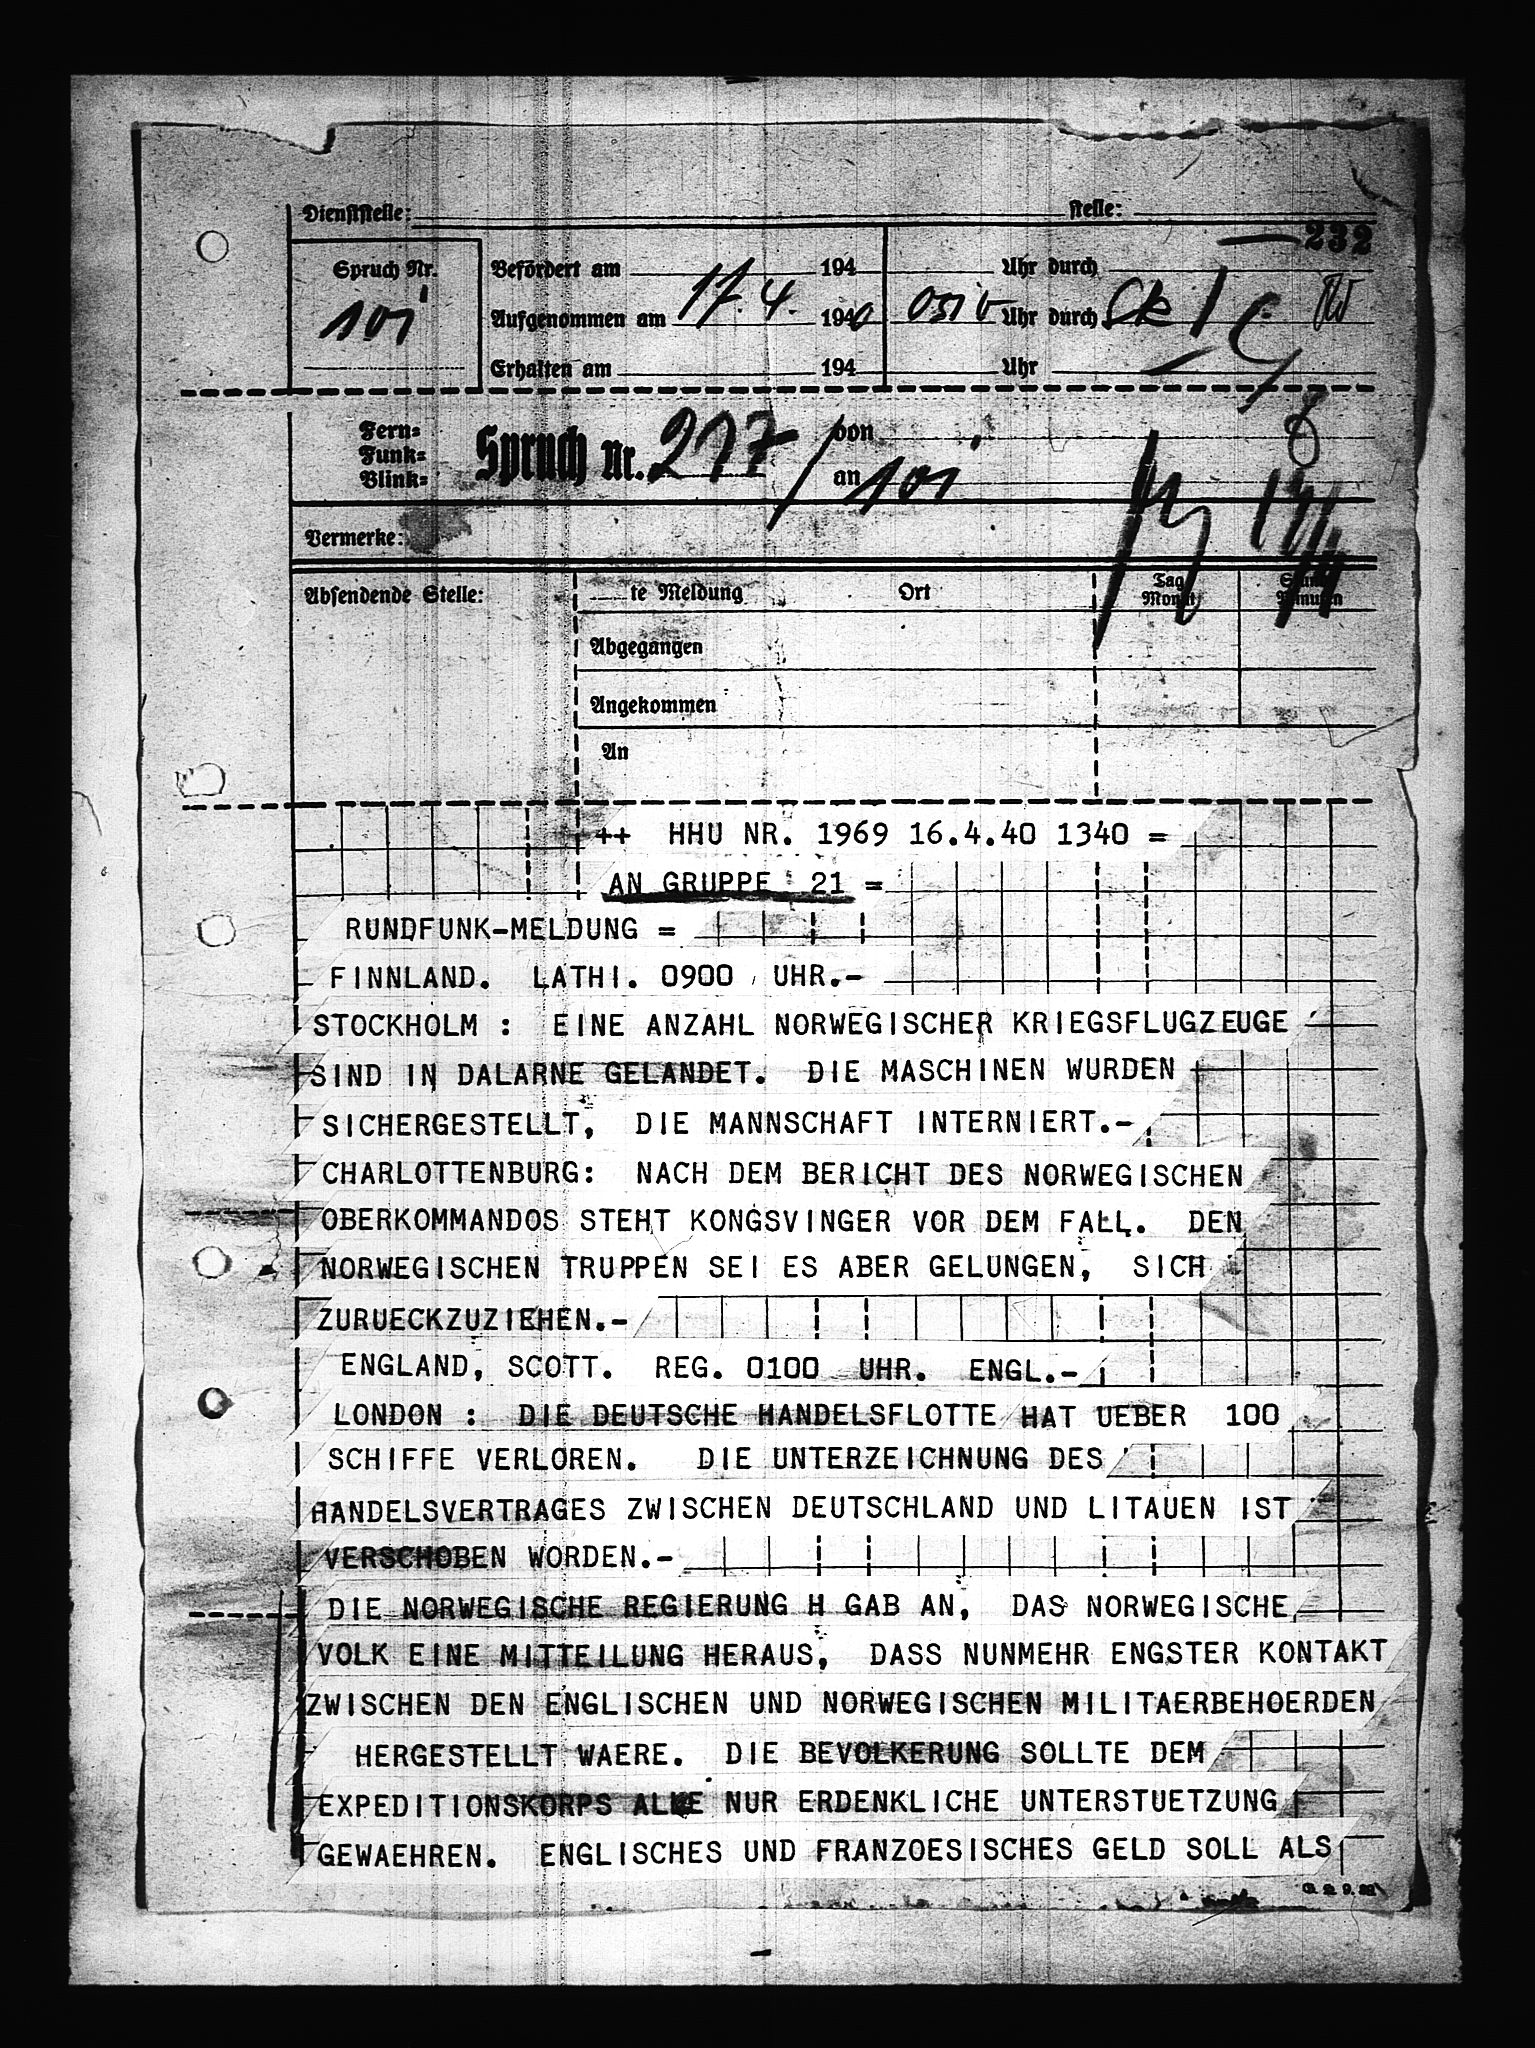 Dienststelle: stelle:
232
Spruch Nr. Befördert am 194 Uhr durch
101 Aufgenommen am 17.4. 1940 Uhr durch
Erhalten am 194 Uhr
Fern-
Funk-
Blink-
Spruch Nr. 217 / von
an 101
Vermerke:
Absendende Stelle: te Meldung Ort Tag Monat Stunde Minuten
Abgegangen
Angekommen
An
++ HHU NR. 1969 16.4.40 1340 =
AN GRUPPE 21 =
RUNDFUNK-MELDUNG =
FINNLAND. LATHI. 0900 UHR.-
STOCKHOLM : EINE ANZAHL NORWEGISCHER KRIEGSFLUGZEUGE
SIND IN DALARNE GELANDET. DIE MASCHINEN WURDEN
SICHERGESTELLT, DIE MANNSCHAFT INTERNIERT.-
CHARLOTTENBURG: NACH DEM BERICHT DES NORWEGISCHEN
OBERKOMMANDOS STEHT KONGSVINGER VOR DEM FALL. DEN
NORWEGISCHEN TRUPPEN SEI ES ABER GELUNGEN, SICH
ZURUECKZUZIEHEN.-
ENGLAND, SCOTT. REG. 0100 UHR. ENGL.-
LONDON : DIE DEUTSCHE HANDELSFLOTTE HAT UEBER 100
SCHIFFE VERLOREN. DIE UNTERZEICHNUNG DES
HANDELSVERTRAGES ZWISCHEN DEUTSCHLAND UND LITAUEN IST
VERSCHOBEN WORDEN.-
DIE NORWEGISCHE REGIERUNG H GAB AN, DAS NORWEGISCHE
VOLK EINE MITTEILUNG HERAUS, DASS NUNMEHR ENGSTER KONTAKT
ZWISCHEN DEN ENGLISCHEN UND NORWEGISCHEN MILITAERBEHOERDEN
HERGESTELLT WAERE. DIE BEVOLKERUNG SOLLTE DEM
EXPEDITIONSKORPS ALLE NUR ERDENKLICHE UNTERSTUETZUNG
GEWAEHREN. ENGLISCHES UND FRANZOESISCHES GELD SOLL ALS